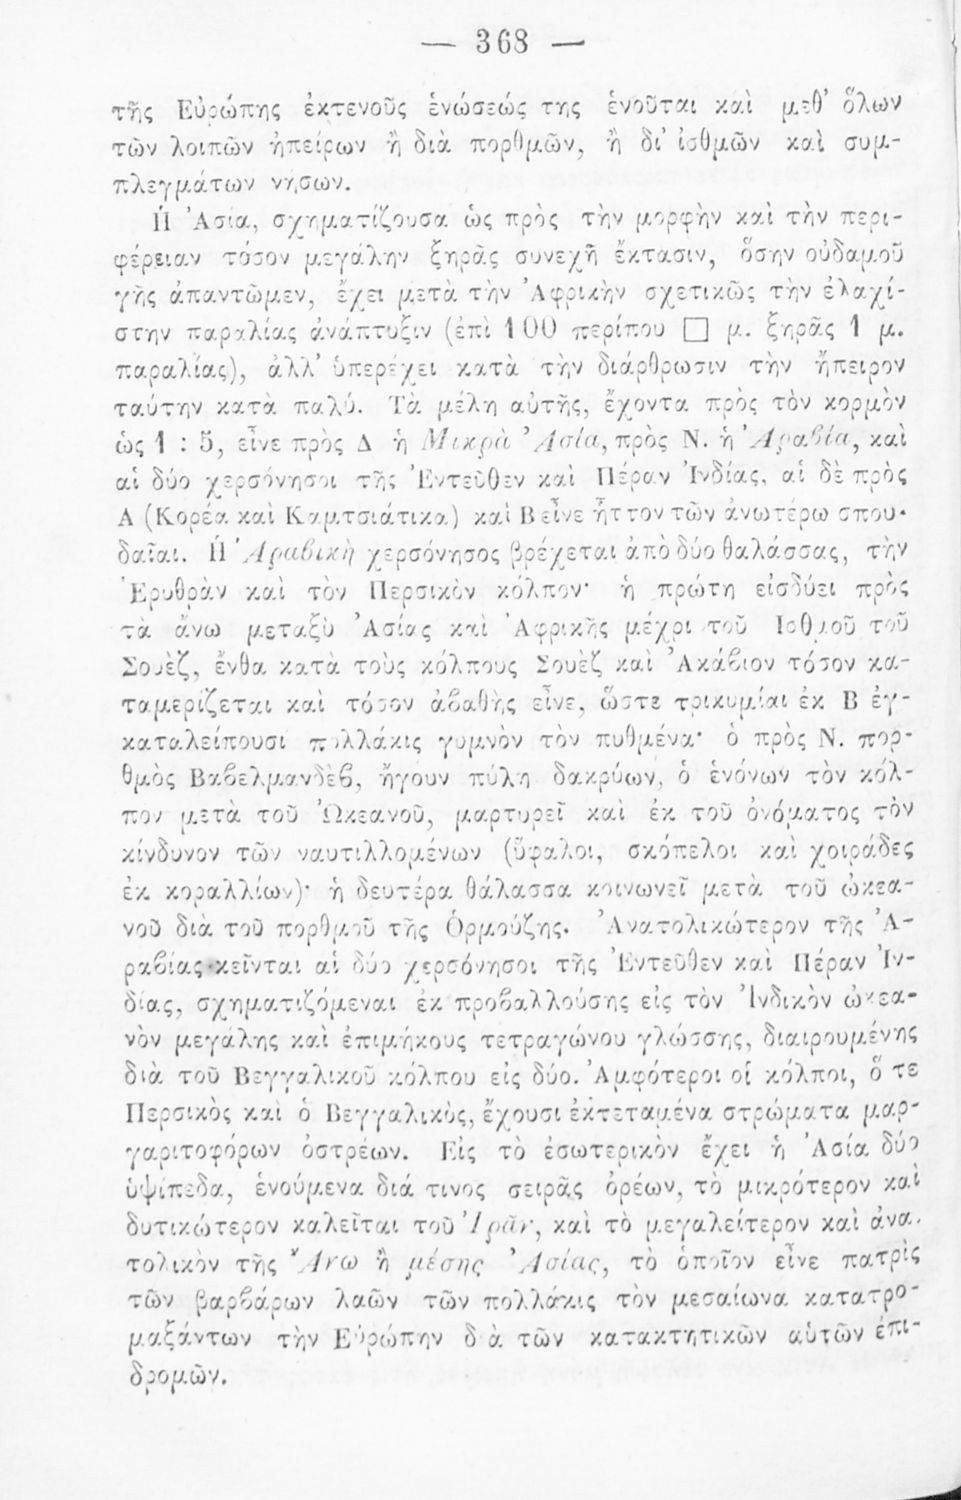 — 368 —
τῆς Εὐρώπης ἐκτενοῦς ἑνώσεώς της ἑνοῦται καὶ μεθ’ ὅλων
τῶν λοιπῶν ἠπείρων ἢ διὰ πορθμῶν, ἢ δι’ ἰσθμῶν καὶ συμ-
πλεγμάτων νήσων.
Ἡ Ἀσία, σχηματίζουσα ὡς πρὸς τὴν μορφὴν καὶ τὴν περι-
φέρειαν τόσον μεγάλην ξηρᾶς συνεχῆ ἔκτασιν, ὅσην οὐδαμοῦ
γῆς ἀπαντῶμεν, ἔχει μετὰ τὴν Ἀφρικὴν σχετικῶς τὴν ἐλαχί-
στην παραλίας ἀνάπτυξιν (ἐπὶ 100 περίπου □ μ. ξηρᾶς 1 μ.
παραλίας), ἀλλ’ ὑπερέχει κατὰ τὴν διάρθρωσιν τὴν ἤπειρον
ταύτην κατὰ παλύ. Τὰ μέλη αὐτῆς, ἔχοντα πρὸς τὸν κορμὸν
ὡς 1 : 5, εἶνε πρὸς Δ ἡ Μικρὰ Ἀσία, πρὸς Ν. ἡ Ἀραβία, καὶ
αἱ δύο χερσόνησοι τῆς Ἐντεῦθεν καὶ Πέραν Ἰνδίας, αἱ δὲ πρὸς
Α (Κορέα καὶ Καμτσιάτικα) καὶ Β εἶνε ἧττον τῶν ἀνωτέρω σπου-
δαῖαι. Ἡ Ἀραβικὴ χερσόνησος βρέχεται ἀπὸ δύο θαλάσσας, τὴν
Ἐρυθρὰν καὶ τὸν Περσικὸν κόλπον· ἡ πρώτη εἰσδύει πρὸς
τὰ ἄνω μεταξὺ Ἀσίας καὶ Ἀφρικῆς μέχρι τοῦ Ἰσθμοῦ τοῦ
Σουὲζ, ἔνθα κατὰ τοὺς κόλπους Σουὲζ καὶ Ἀκάβιον τόσον κα-
ταμερίζεται καὶ τόσον ἀβαθὴς εἶνε, ὥστε τρικυμίαι ἐκ Β ἐγ-
καταλείπουσι πολλάκις γυμνὸν τὸν πυθμένα· ὁ πρὸς Ν. πορ-
θμὸς Βαβελμανδὲβ, ἤγουν πύλη δακρύων, ὁ ἑνόνων τὸν κόλ-
πον μετὰ τοῦ Ὠκεανοῦ, μαρτυρεῖ καὶ ἐκ τοῦ ὀνόματος τὸν
κίνδυνον τῶν ναυτιλλομένων (ὕφαλοι, σκόπελοι καὶ χοιράδες
ἐκ κοραλλίων)· ἡ δευτέρα θάλασσα κοινωνεῖ μετὰ τοῦ ὠκεα-
νοῦ διὰ τοῦ πορθμοῦ τῆς Ὁρμούζης. Ἀνατολικώτερον τῆς Ἀ-
ραβίας κεῖνται αἱ δύο χερσόνησοι τῆς Ἐντεῦθεν καὶ Πέραν Ἰν-
δίας, σχηματιζόμεναι ἐκ προβαλλούσης εἰς τὸν Ἰνδικὸν ὠκεα-
νὸν μεγάλης καὶ ἐπιμήκους τετραγώνου γλώσσης, διαιρουμένης
διὰ τοῦ Βεγγαλικοῦ κόλπου εἰς δύο. Ἀμφότεροι οἱ κόλποι, ὅ τε
Περσικὸς καὶ ὁ Βεγγαλικὸς, ἔχουσι ἐκτεταμένα στρώματα μαρ-
γαριτοφόρων ὀστρέων. Εἰς τὸ ἐσωτερικὸν ἔχει ἡ Ἀσία δύο
ὑψίπεδα, ἑνούμενα διά τινος σειρᾶς ὀρέων, τὸ μικρότερον καὶ
δυτικώτερον καλεῖται τοῦ Ἰρᾶν, καὶ τὸ μεγαλείτερον καὶ ἀνα-
τολικὸν τῆς Ἄνω ἢ μέσης Ἀσίας, τὸ ὁποῖον εἶνε πατρὶς
τῶν βαρβάρων λαῶν τῶν πολλάκις τὸν μεσαίωνα κατατρο-
μαξάντων τὴν Εὐρώπην διὰ τῶν κατακτητικῶν αὑτῶν ἐπι-
δρομῶν.